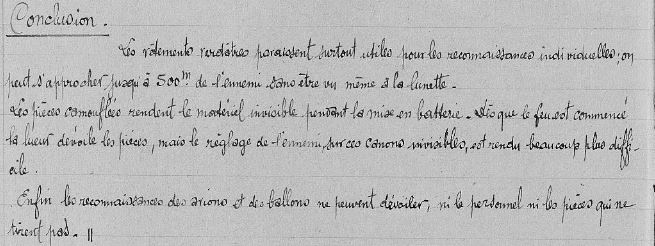 Conclusion.
Les vêtements verdâtres paraissent surtout utiles pour les reconnaissances individuelles; on
peut s'approcher jusqu'à 500m de l'ennemi sans être vu même à la lunette.
Les pièces camouflées rendent le matériel invisible pendant la mise en batterie. Dès que le feu est commencé
la lueur dévoile les pièces, mais le réglage de l'ennemi, sur ces canons invisibles, est rendu beaucoup plus diffi-
cile.
Enfin les reconnaissances des avions et des ballons ne peuvent dévoiler, ni le personnel ni les pièces qui ne
tirent pas. //